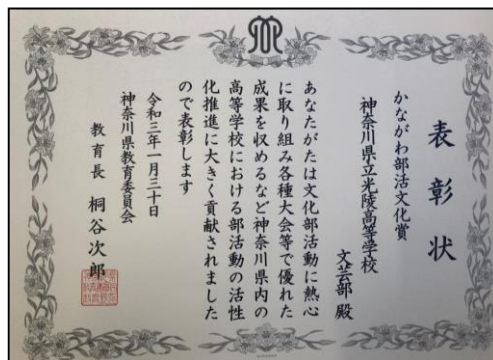 表彰状
かながわ部活文化賞
神奈川県立光陵高等学校
文芸部殿
あなたがたは文化部活動に熱心
に取り組み各種大会等で優れた
成果を収めるなど神奈川県内の
高等学校における部活動の活性
化推進に大きく貢献されました
ので表彰します
令和三年一月三十日
神奈川県教育委員会
教育長 桐谷次郎